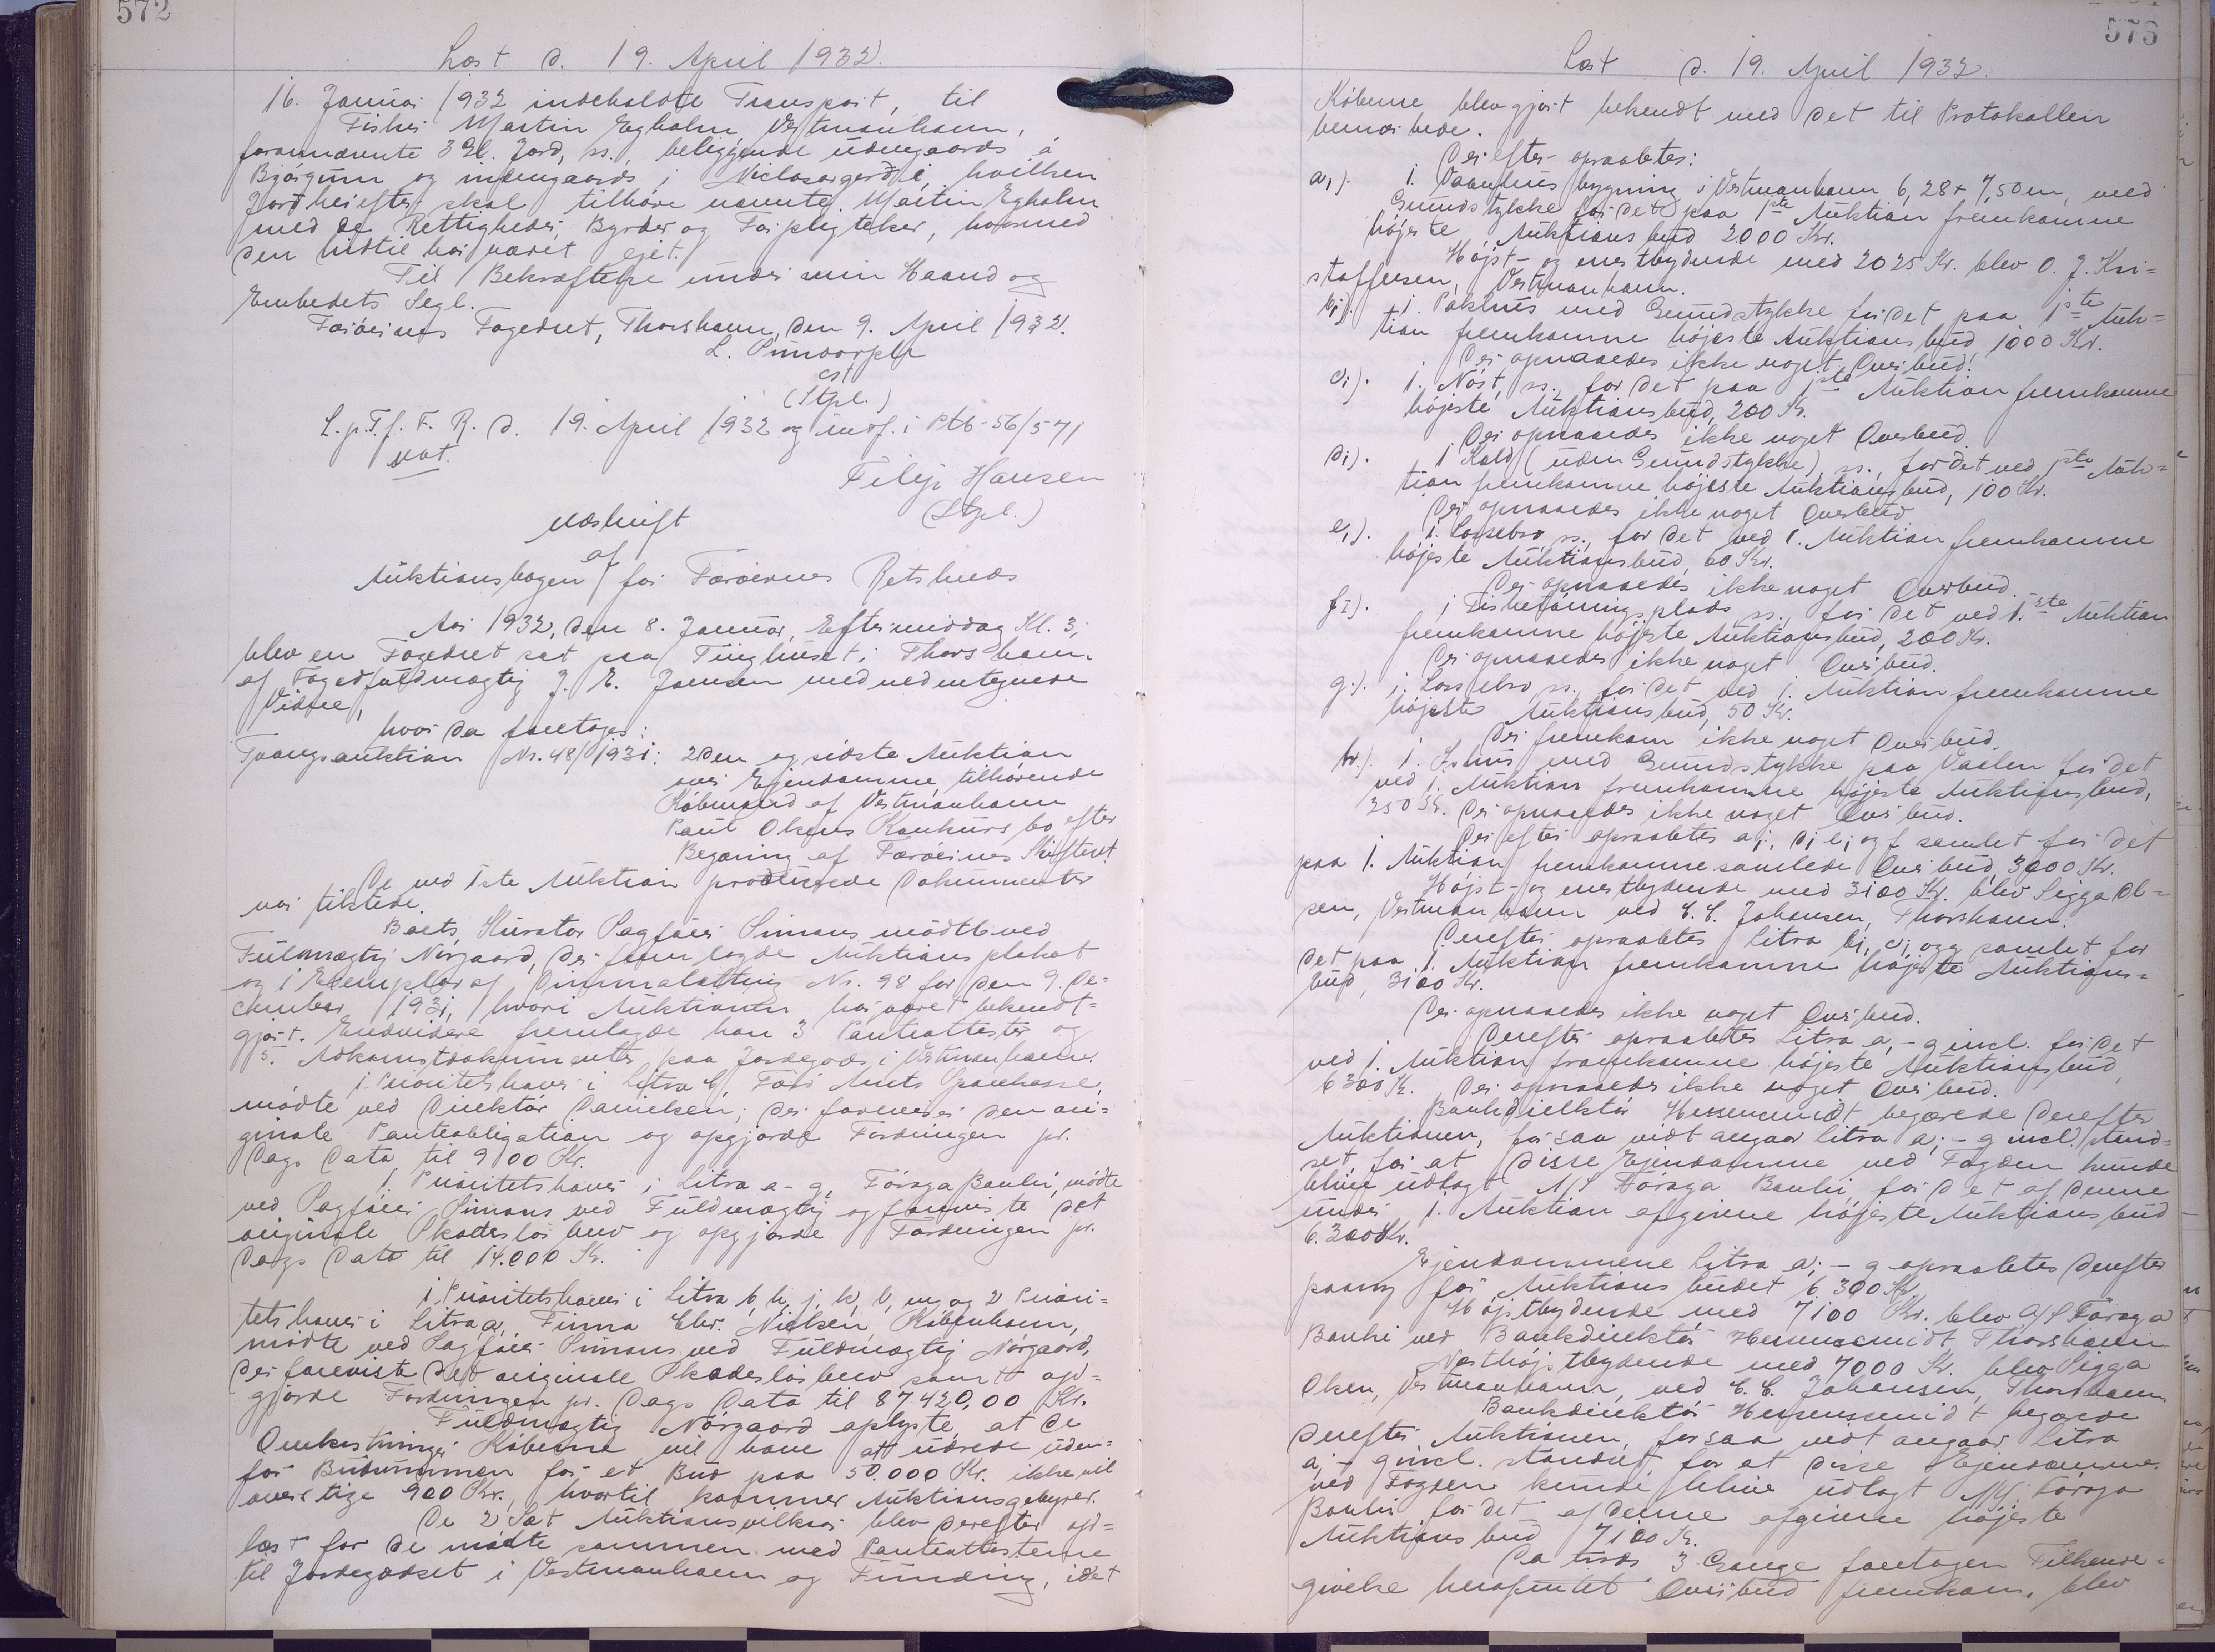 572
Læst d. 19. April 1932.
16. Januar 1932 indeholdte Transport, til
Fisker Martin Egholm, Vestmanhavn,
forannævnte 3 Gl. Jord, ss., beliggende udengaards á
Bjørgum og indengaards i Niclasargerði, hvilken
Jord herefter skal tilhøre nævnte Martin Egholm
med de Rettigheder, Byrder og Forpligtelser, hvormed
den hidtil har været ejet.
Til Bekræftelse under min Haand og
Embedets Segl.
Færøernes Fogedret, Thorshavn, den 9. April 1932.
L.
cst
(Stpl.)
L. p. T. f. F. R. d. 19. April 1932 og indf. i Ptb. 56/571
Filip Hansen
(Stpl.)
Udskrift
af
Auktionsbogen for Færøernes Retskreds
Aar 1932, den 8. Januar, Eftermiddag Kl. 3,
blev en Fogedret sat paa Tinghuset i Thorshavn
af Fogedfuldmægtig J. E. Joensen med nedentegnede
Vidne,
hvor da foretoges:
Tvangsauktion Nr. 48/1931: 2den og sidste Auktion
over Ejendomme, tilhørende
Købmand af Vestmanhavn
Paul Olsens Konkursbo efter
Begæring af Færøernes Skifteret.
De ved 1ste Auktion producerede Dokumenter
var tilstede.
Boets Kurator Sagfører Simons mødte ved
Fuldmægtig Nørgaard, der fremlagde Auktionsplakat
og 1 Exemplar af Dimmalætting Nr. 98 for den 9. De=
cember 1931, hvori Auktionen har været bekendt=
gjort. Endvidere fremlagde han 3 Panteattester og
5. Adkomstdokumenter paa Jordegods i Vestmanhavn.
1 Prioritetshaver i Litra Færø Amts Sparekasse,
mødte ved Direktør Danielsen, der foreviser den ori=
ginale Panteobligation og opgjorde Fordringen pr.
Dags Dato til 900 Kr.
1. Prioritetshaver i Litra a - g, Føroya Banki, mødte
ved Sagfører Simons ved Fuldmægtig og foreviste det
originale Skadesløsbrev og opgjorde Fordringen pr.
Dags Dato til 14.000 Kr.
1. Prioritetshaver i Litra b, h, j, k, l, m, og 2 Priori=
tetshaver i Litra a, Firma Chr. Nielsen, København,
mødte ved Sagfører Simons ved Fuldmægtig Nørgaard,
der foreviste det originale Skadesløsbrev samt op=
gjorde Fordringen pr. Dags Dato til 87.420,00 Kr.
Fuldmægtig Nørgaard oplyste, at de
Omkostninger Køberne vil have at udrede uden=
for Budsummen for et Bud paa 50.000 Kr. ikke vil
overstige 900 Kr., hvortil kommer Auktionsgebyrer.
De 2 Sæt Auktionsvilkaar blev derefter op=
læst for de mødte sammen med Panteattesterne
til Jordegodset i Vestmanhavn og Funding, idet
573
Læst d. 19. April 1932.
Køberne blev gjort bekendt med det til Protokollen
bemærkede.
Derefter opraabtes:
a,). 1. Vaanhusbygning i Vestmanhavn 6,28 + 7,50 m, med
Grundstykke for det paa 1ste Auktion fremkomne
højeste Auktionsbud 2000 Kr.
Højst- og enestbydende med 2025 Kr. blev O. J. Kri=
stoffersen, Vestmanhavn.
b,). 1. Pakhus med Grundstykke for det paa 1ste Auk=
tion fremkomne højeste Auktionsbud, 1000 Kr.
Der opnaaedes ikke noget Overbud.
c,). 1. Nøst, ss., for det paa 1ste Auktion fremkomne
højeste Auktionsbud, 200 Kr.
Der opnaaedes ikke noget Overbud.
d,). 1 Kald (uden Grundstykke), ss., for det ved 1ste Auk=
tion fremkomne højeste Auktionsbud, 100 Kr.
Der opnaaedes ikke noget Overbud
e,). 1. Lossebro, ss., for det ved 1. Auktion fremkomne
højeste Auktionsbud, 60 Kr.
Der opnaaedes ikke noget Overbud.
f,). 1 Fisketørringsplads ss., for det ved 1.ste Auktion
fremkomne højeste Auktionsbud, 200 Kr.
Der opnaaedes ikke noget Overbud.
g,). 1. Lossebro ss. for det ved 1. Auktion fremkomne
højeste Auktionsbud, 50 Kr.
Der fremkom ikke noget Overbud.
h,). 1. Ishus med Grundstykke paa Vaalen for det
ved 1. Auktion fremkomne højeste Auktionsbud,
250 Kr. Der opnaaedes ikke noget Overbud.
Derefter opraabtes a,, d, e, og f samlet for det
paa 1. Auktion fremkomne samlede Overbud, 3000 Kr.
Højst- og enestbydende med 3100 Kr. blev Sigga Ol=
sen, Vestmanhavn ved C. C. Johansen, Thorshavn.
Derefter opraabtes Litra b,, c, og g samlet for
det paa 1. Auktion fremkomne højeste Auktions=
bud, 3100 Kr.
Der opnaaedes ikke noget Overbud.
Derefter opraabtes Litra a, - g incl. for det
ved 1. Auktion fremkomne højeste Auktionsbud,
6300 Kr. Der opnaaedes ikke noget Overbud.
Bankdirektør begærede derefter
Auktionen, forsaa vidt angaar Litra a, - g incl. stand=
set for at disse Ejendomme ved Fogden kunde
blive udlagt A/S Føroya Banki for det af denne
under 1. Auktion afgivne højeste Auktionsbud
6.300 Kr.
Ejendommene Litra a, - g opraabtes derefter
paany for Auktionsbudet 6.300 Kr.
Højstbydende med 7100 Kr. blev A/S Føroya
Banki ved Bankdirektør Thorshavn
Næsthøjstbydende med 7000 Kr. blev Sigga
Olsen, Vestmanhavn, ved C. C. Johansen, Thorshavn
Bankdirektør begærede
derefter Auktionen, forsaa vidt angaar Litra
a, - g incl. standset for at disse Ejendomme
ved Fogden kunde blive udlagt A/S. Føroya
Banki for det af denne afgivne højeste
Auktionsbud 7100 Kr.
Da trods 3 Gange foretagen Tilkende=
givelse herefter intet Overbud fremkom, blev